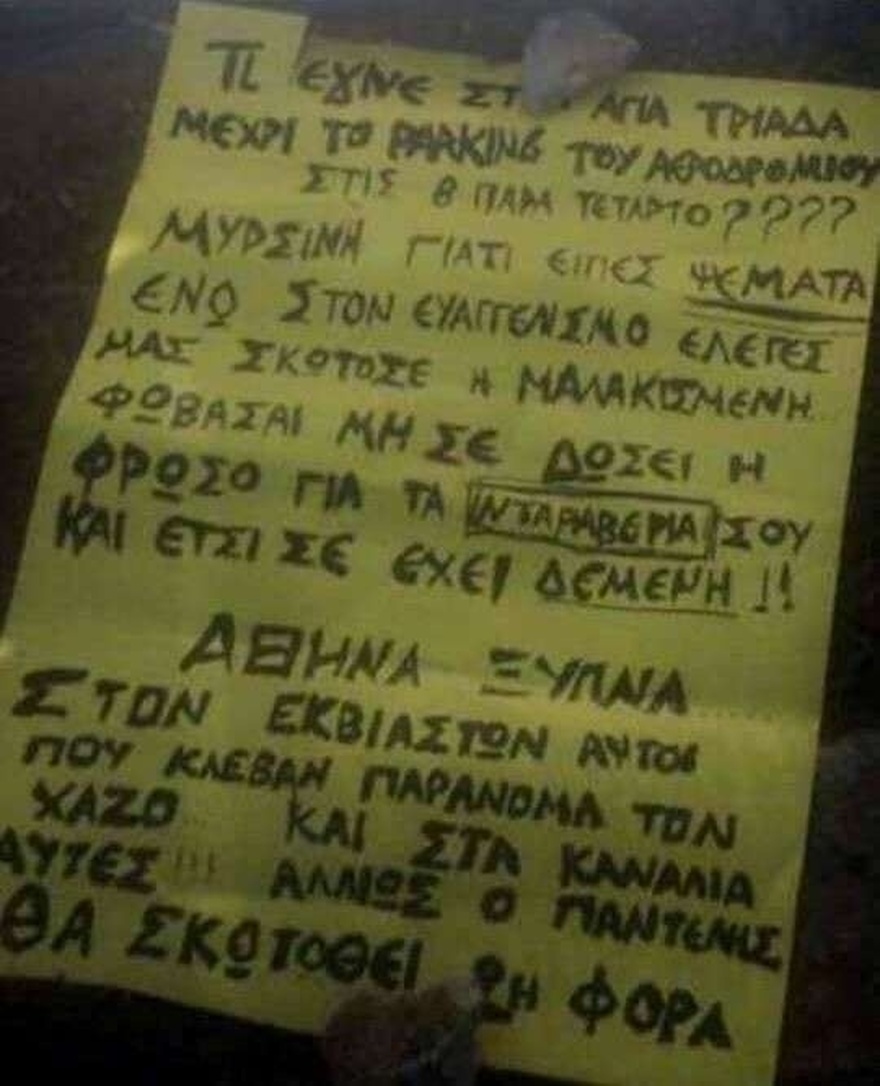 ΤΙ ΕΓΙΝΕ ΣΤ ΑΓΙΑ ΤΡΙΑΔΑ
ΜΕΧΡΙ ΤΟ PARKING ΤΟΥ ΑΕΡΟΔΡΟΜΙΟΥ
ΣΤΙΣ 8 ΠΑΡΑ ΤΕΤΑΡΤΟ????
ΜΥΡΣΙΝΗ ΓΙΑΤΙ ΕΙΠΕΣ ΨΕΜΑΤΑ
ΕΝΩ ΣΤΟΝ ΕΥΑΓΓΕΛΙΣΜΟ ΕΛΕΓΕΣ
ΜΑΣ ΣΚΟΤΟΣΕ Η ΜΑΛΑΚΙΣΜΕΝΗ
ΦΩΒΑΣΑΙ ΜΗ ΣΕ ΔΩΣΕΙ Η
ΦΡΩΣΟ ΓΙΑ ΤΑ ΙΝΤΑΡΑΒΕΡΙΑ ΣΟΥ
ΚΑΙ ΕΤΣΙ ΣΕ ΕΧΕΙ ΔΕΜΕΝΗ!!
ΑΘΗΝΑ ΞΥΠΝΑ
ΣΤΟΝ ΕΚΒΙΑΣΤΩΝ ΑΥΤΟΙ
ΠΟΥ ΚΛΕΒΑΝ ΠΑΡΑΝΟΜΑ ΤΟΝ
ΧΑΖΟ... ΚΑΙ ΣΤΑ ΚΑΝΑΛΙΑ
ΑΥΤΕΣ!!! ΑΛΛΙΩΣ Ο ΠΑΝΤΕΛΗΣ
ΘΑ ΣΚΩΤΟΘΕΙ 2Η ΦΟΡΑ